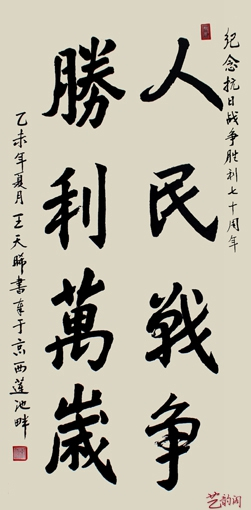 纪念抗日战争胜利七十周年
人民戰争
勝利萬歲
乙未年夏月王天睎書車于京西莲池畔
艺韵阁